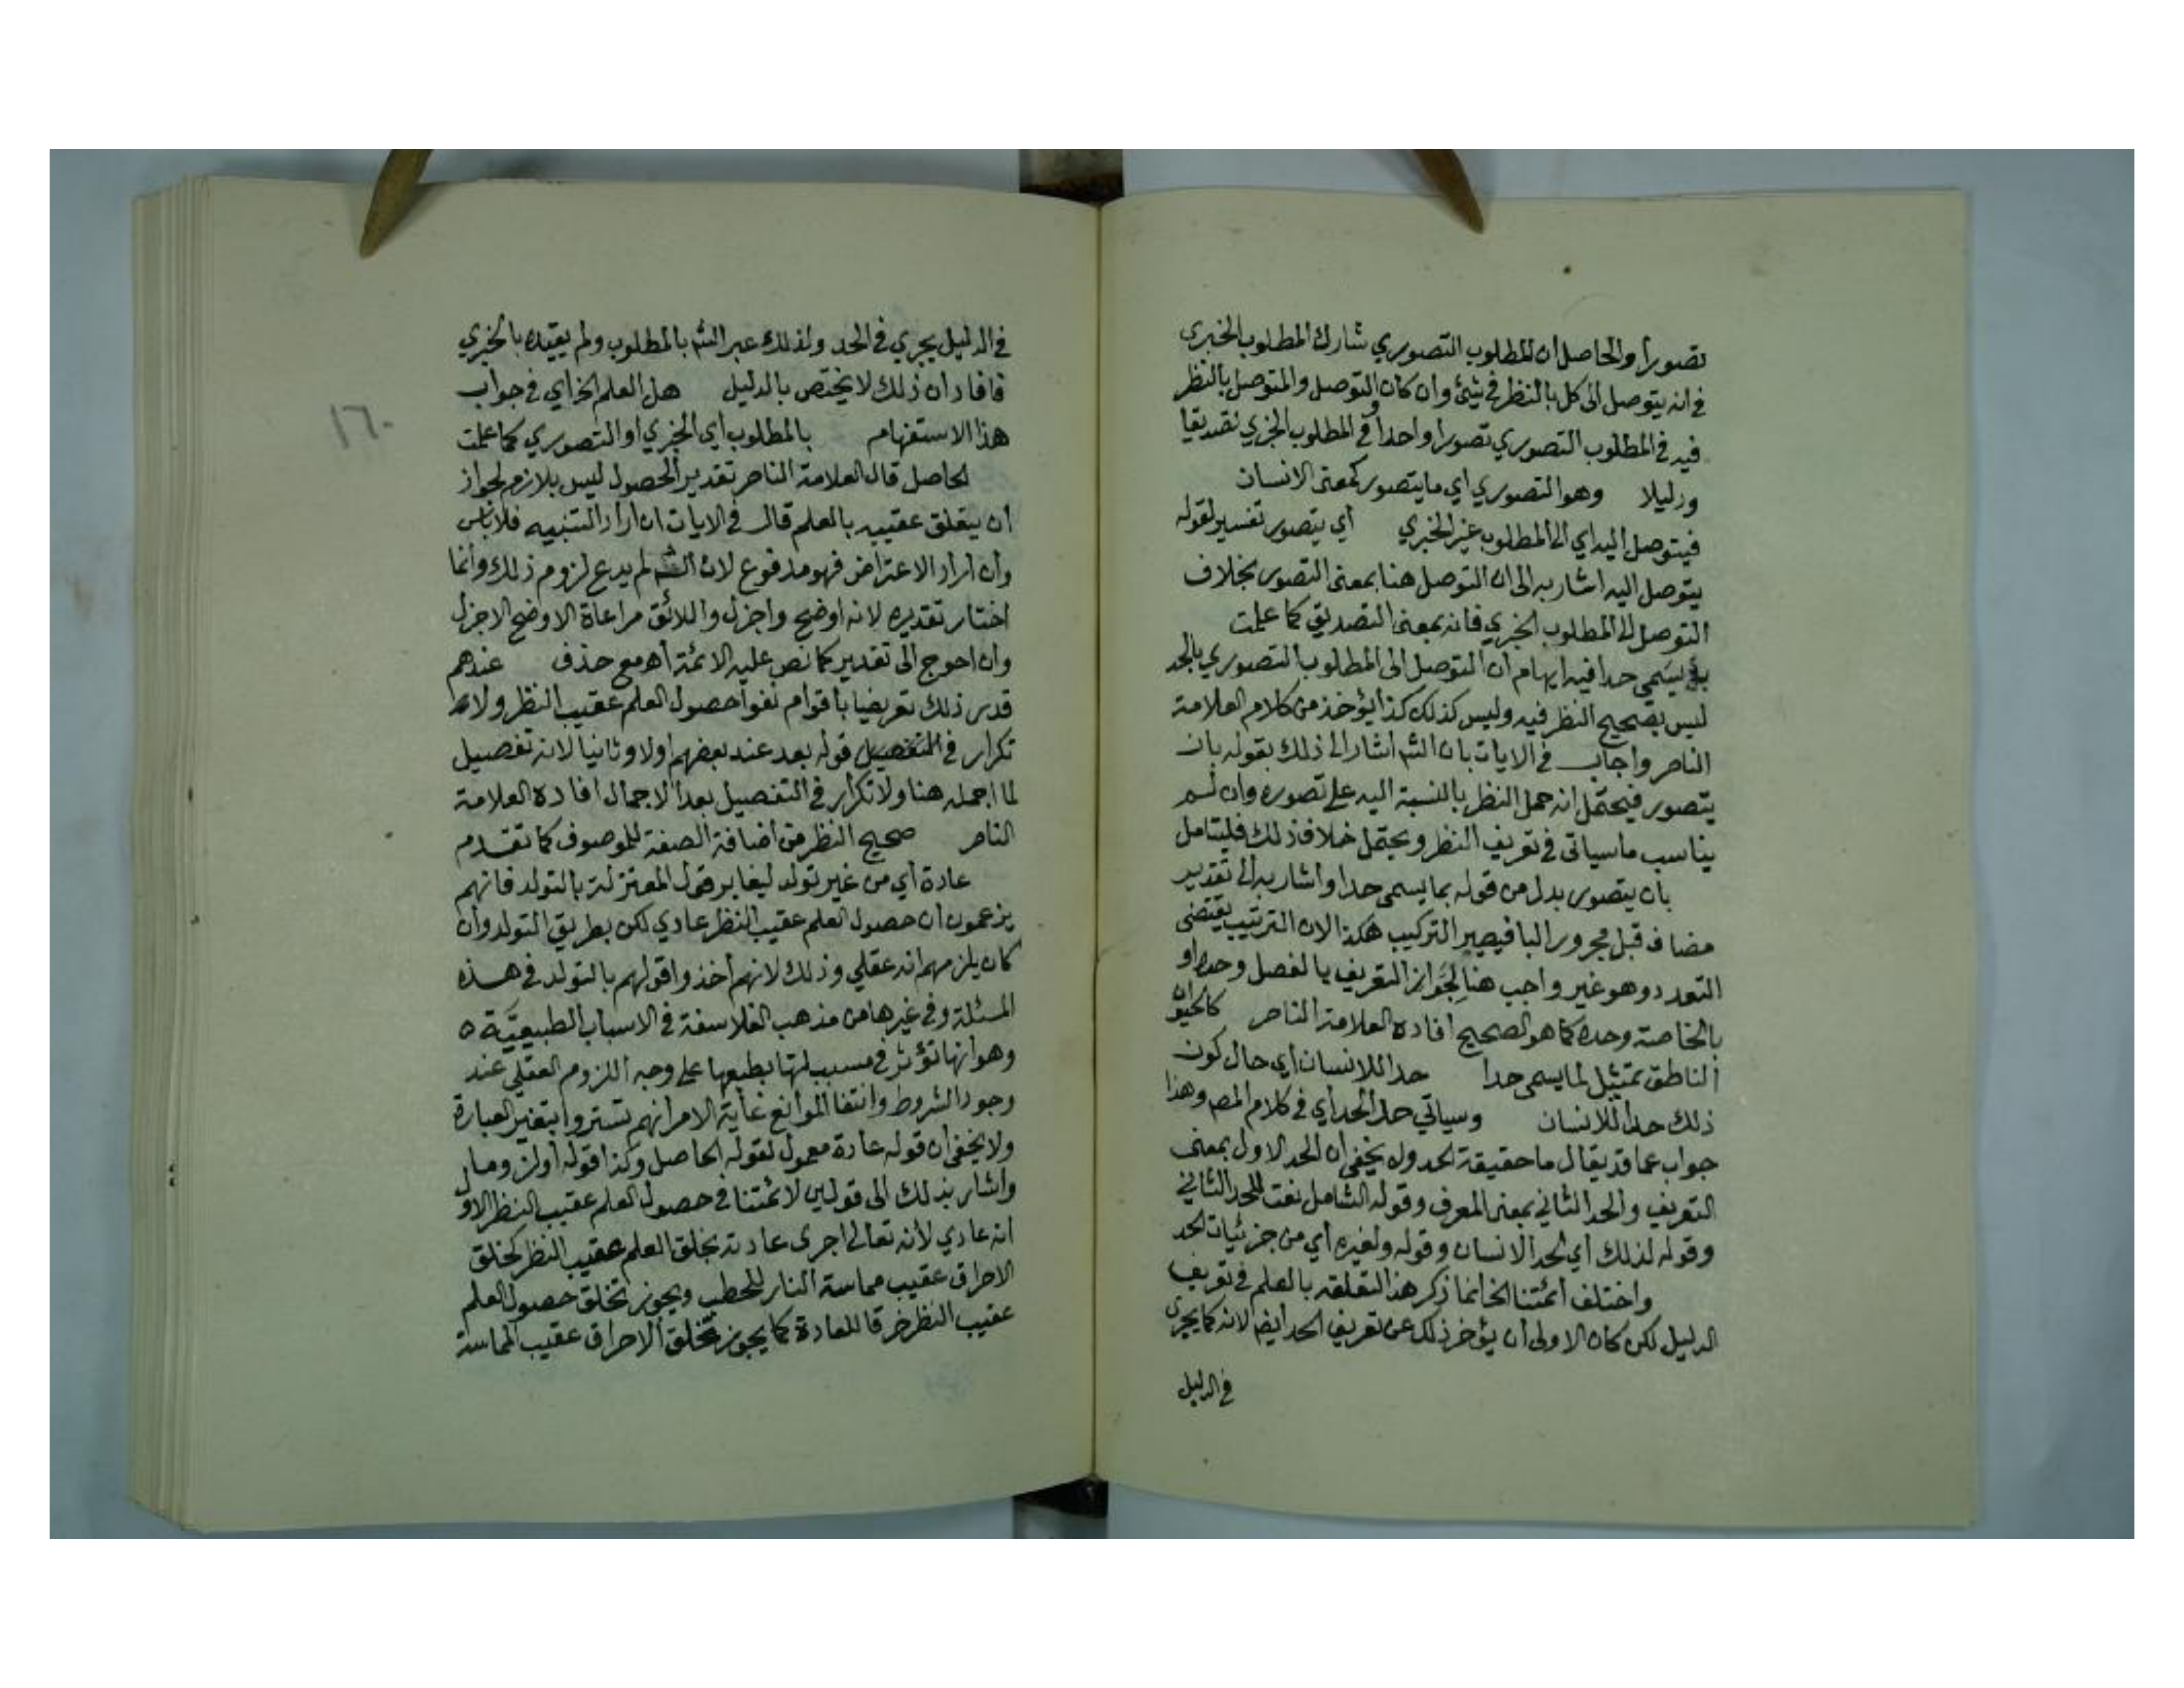 تصورا والحاصل ان المطلوب التصوري شارك المطلوب الخبرى
في انه يتوصل الى كل بالنظر في شيئ وان كان التوصل والمتوصل بالنظر
فيه في المطلوب التصوري تصورا واحدا وفي المطلوب الخبري تصديقا
ودليلا وهو التصوري اي ما يتصور كمعنى الانسان
فيتوصل اليه اي الى المطلوب غير الخبري اي يتصور تفسير لقوله
يتوصل اليه اشار به الى ان التوصل هنا بمعنى التصور بخلاف
التوصل الى المطلوب الخبري فانه بمعنى التصديق كما علمت
يسمى حدا فيه ايهام ان التوصل الى المطلوب التصوري بالحد
ليس بصحيح النظر فيه وليس كذلك كذا يؤخذ من كلام العلامة
الناصر واجاب في الايات بان الشم اشار الى ذلك بقوله بان
يتصور فيحتمل انه حمل النظر بالنسبة اليه على تصوره وان لم
يناسب ما سياتى في تعريف النظر ويحتمل خلاف ذلك فليتامل
بان يتصور بدل من قوله بما يسمى حدا واشار به الى تقدير
مضاف قبل مجرور البا فيصير التركيب هكذا لان الترتيب يقتضى
التعدد وهو غير واجب هنا لجواز التعريف بالفصل وحده او
بالخاصة وحده كما هو الصحيح افاده العلامة الناصر كالحيوان
الناطق تمثيل لما يسمى حدا حدا للانسان اي حال كون
ذلك حدا للانسان وسياتي حد الحد اي في كلام المصم وهذا
جواب عما قد يقال ما حقيقة الحد ولا يخفى ان الحد الاول بمعنى
التعريف والحد الثاني بمعنى المعرف وقوله الشامل نعت للحد الثاني
وقوله لذلك اي لحد الانسان وقوله ولغيره اي من جزئيات الحد
واختلف ائمتنا الخ انما ذكر هذا لتعلقه بالعلم في تعريف
الدليل لكن كان الاولى ان يؤخر ذلك عن تعريف الحد ايضم لانه كما يجرى
في الدليل
في الدليل يجري في الحد ولذلك عبر الشم بالمطلوب ولم يقيده بالخبري
فافاد ان ذلك لا يختص بالدليل هل العلم الخ اي في جواب
هذا الاستفهام بالمطلوب اي الخبري او التصوري كما علمت
١٦٠
الحاصل قال العلامة الناصر تقدير الحصول ليس بلازم لجواز
ان يتعلق عقيبه بالعلم قال في الايات ان اراد التنبيه فلا باس
وان اراد الاعتراض فهو مدفوع لان الشم لم يدع لزوم ذلك وانما
اختار تقديره لانه اوضح واجزل واللائق مراعاة الاوضح الاجزل
وان احوج الى تقدير كما نص عليه الائمة اه مع حذف عندهم
قدر ذلك تعريضا باقوام نفوا حصول العلم عقيب النظر ولا
تكرار في التفصيل قوله بعد عند بعضهم اولا وثانيا لانه تفصيل
لما اجمله هنا ولا تكرار في التفصيل بعد الاجمال افاده العلامة
الناصر صحيح النظر من اضافة الصفة للموصوف كما تقدم
عادة اي من غير تولد ليغاير قول المعتزلة بالتولد فانهم
يزعمون ان حصول العلم عقيب النظر عادي لكن بطريق التولد وان
كان يلزمهم انه عقلي وذلك لانهم اخذوا قولهم بالتولد في هذه
المسئلة وفي غيرها من مذهب الفلاسفة في الاسباب الطبيعيّة
وهو انها تؤثر في مسبباتها بطبعها على وجه اللزوم العقلي عند
وجود الشروط وانتفا الموانع غاية الامر انهم تستروا بتغيير العبارة
ولا يخفى ان قوله عادة معمول لقوله الحاصل وكذا قوله او لزوما
واشار بذلك الى قولين لائمتنا في حصول العلم عقيب النظر الاول
انه عادي لانه تعالى اجرى عادته بخلق العلم عقيب النظر كخلق
الاحراق عقيب مماسة النار للحطب ويجوز تخلف حصول العلم
عقيب النظر خرقا للعادة كما يجوز تخلف الاحراق عقيب المماسة